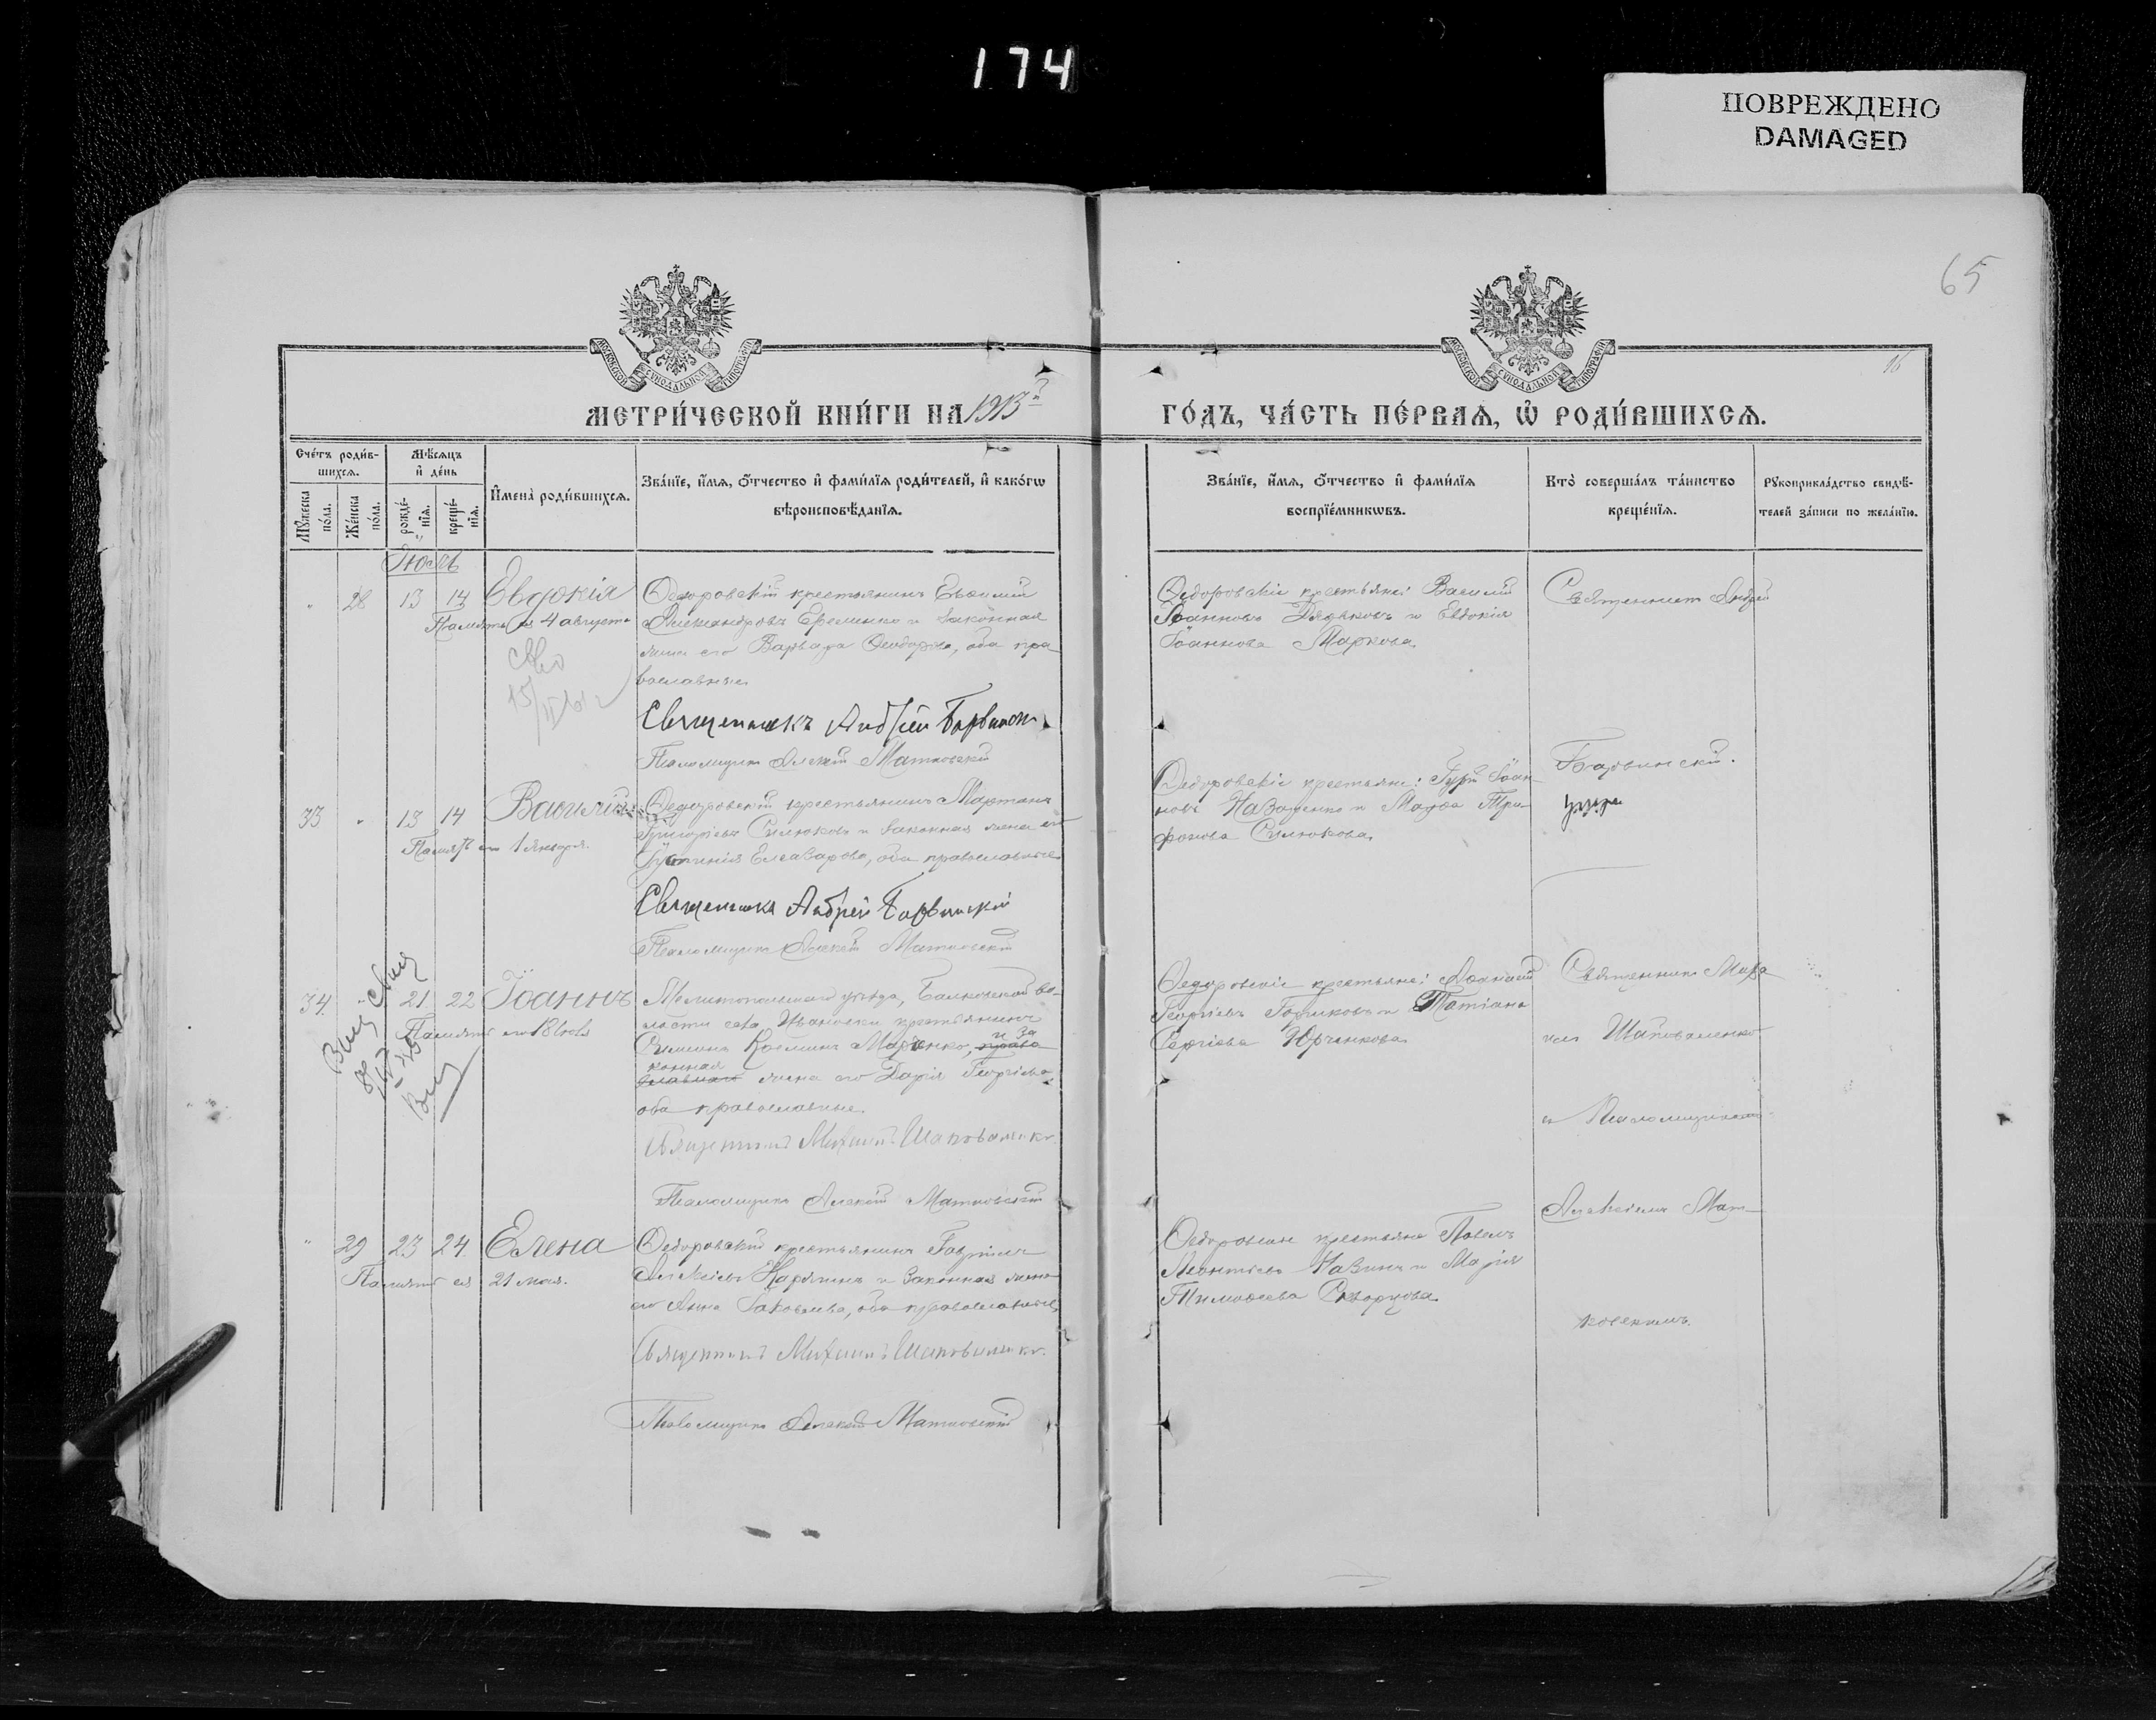 174
ПОВРЕЖДЕНО
DAMAGED
65
16
МОСКОВСКОЙ СѴНОДАЛЬНОЙ ТИПОГРАФІИ
МОСКОВСКОЙ СѴНОДАЛЬНОЙ ТИПОГРАФІИ
МЕТРИ́ЧЕСКОЙ КНИ́ГИ НА 1913й
ГО́ДЪ, ЧА́СТЬ ПЕ́РВАѦ, Ѡ҆ РОДИ́ВШИХСѦ.
Сче́тъ роди́в-
шихсѧ.
Мꙋ́жеска по́ла.
Же́нска по́ла.
Мѣ́сѧцъ
и҆ де́нь
рожде́-нїѧ.
креще́-нїѧ.
И҆мена̀ роди́вшихсѧ.
Зва́нїе, и҆́мѧ, ѻ҆́тчество и҆ фами́лїѧ роди́телей, и҆ како́гѡ
вѣроисповѣ́данїѧ.
Зва́нїе, и҆́мѧ, ѻ҆́тчество и҆ фами́лїѧ
воспрїе́мникѡвъ.
Кто̀ соверша́лъ та́инство
креще́нїѧ.
Рꙋкоприкла́дство свидѣ́-
телей за́писи по жела́нїю.
Іюль
" 28 13 14 Евдокія
Память ея 4 августа
Ѳедоровскій крестьянинъ Евѳимій
Александровъ Еременко и законная
жена его Варвара Ѳеодорова, оба пра-
вославные
Священникъ Андрей Барвинск
Псаломщикъ Алексій Матковскій
Ѳедоровскіе крестьяне: Василій
Іоанновъ Дядковъ и Евдокія
Іоаннова Маркова
Священникъ Андрей
Барвинскій.
33 " 13 14 Василій
Память его 1 января.
Ѳедоровскій крестьянинъ Мартинъ
Григорьевъ Силюковъ и законная жена его
Іустинія Елеазарова, оба православные
Священникъ Андрей Барвинскій
Псаломщикъ Алексій Матковскій
Ѳедоровскіе крестьяне: Гурій Іоан-
новъ Назаренко и Марѳа Три-
фонова Силюкова.
34. 21 22 Іоаннъ
Память его 18 Іюля
Мелитопольскаго уѣзда, Балковской во-
лости села Ивановки крестьянинъ
Косминъ Марченко, и за
конная
жена его Дарія Георгіева
оба православные.
Священникъ Михаилъ Шаповаленко.
Псаломщикъ Алексій Матковскій
Ѳедоровскіе крестьяне:
Георгіевъ Горликовъ и Татіана
Сергіева Юрченкова.
Священникъ Миха
илъ Шаповаленко
и Псаломщикомъ
Алексіемъ Мат-
ковскимъ.
" 29 23 24. Елена
Память ея 21 мая.
Ѳедоровскій крестьянинъ Гавріилъ
Алексіевъ Карякинъ и законная жена
его Анна Іаковлева, оба православные
Священникъ Михаилъ Шаповаленко.
Псаломщикъ Алексій Матковскій
Ѳедоровскіе крестьяне Павелъ
Леонтьевъ и Марія
Тимоѳеева Скворцова.